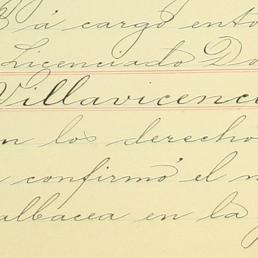 á cargo ento
Licenciado Do
Villavicenci
n los derecho
confirmó el n
albacea en la